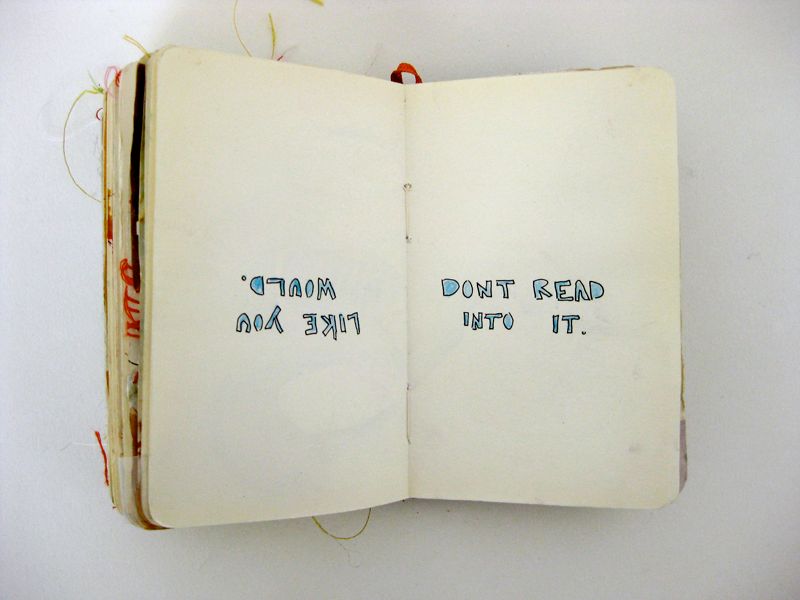 DONT READ
INTO IT.
LIKE YOU
WOULD.